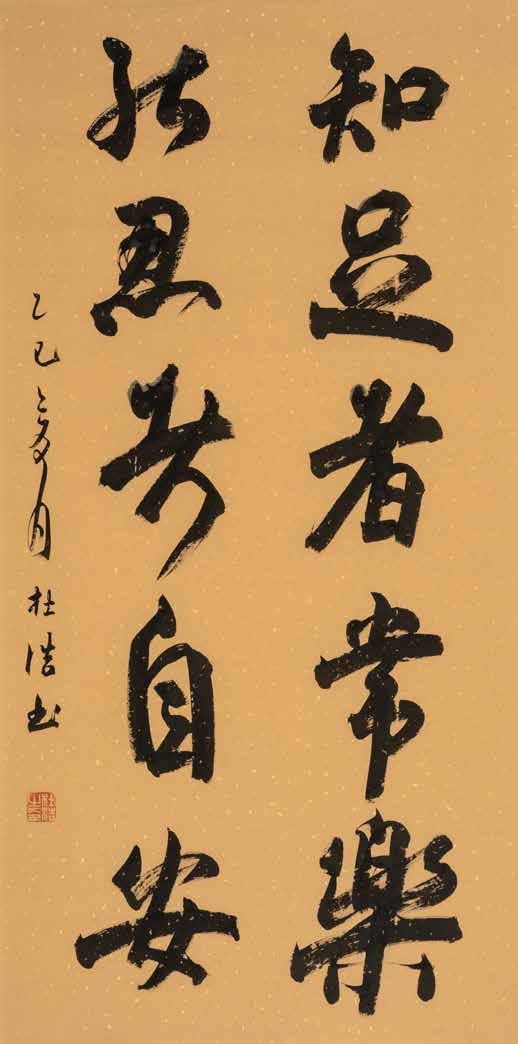 知足者常樂
能忍者自安
乙巳夏月杜浩书